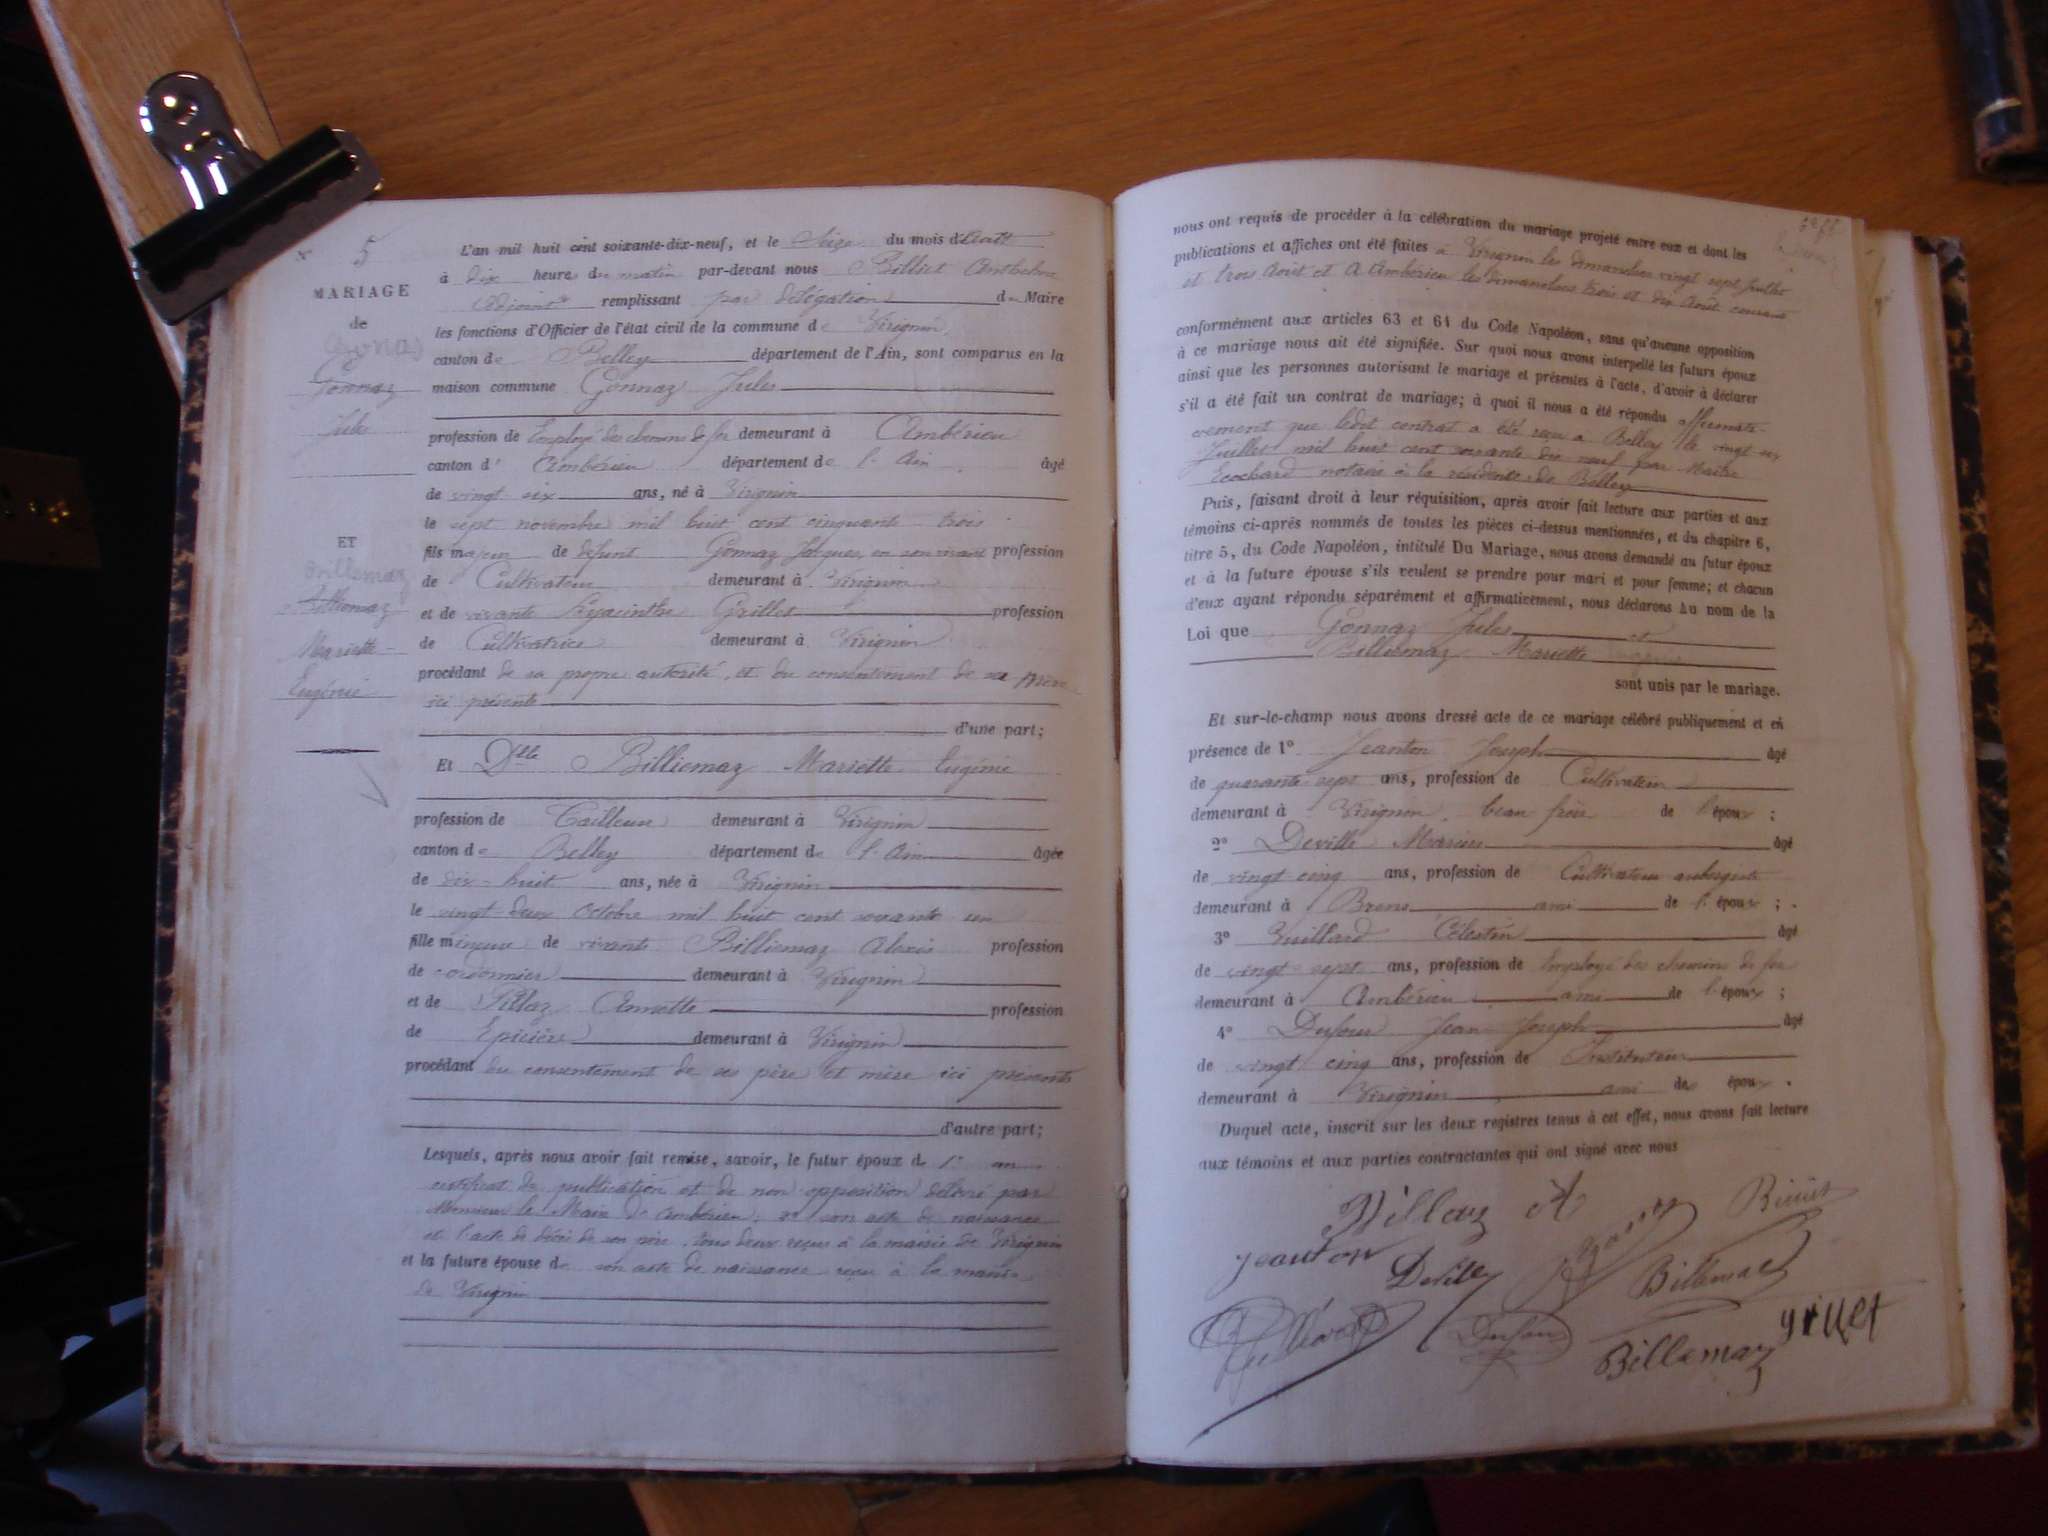 N° 5
MARIAGE
de
Gonnaz
Jules
ET
Billemaz
Billiemaz
Mariette
Eugénie
L'an mil huit cent soixante-dix-neuf, et le Seize du mois d'Août
à dix heures du matin par-devant nous Billiet Anthelme
adjoint remplissant par délégation du Maire
les fonctions d'Officier de l'état civil de la commune de Virignin
canton de Belley département de l'Ain, sont comparus en la
maison commune Gonnaz Jules
profession de Employé des chemins de fer demeurant à Ambérieu
canton d' Ambérieu département de l'Ain âgé
de vingt six ans, né à Virignin
le sept novembre mil huit cent cinquante trois
fils majeur de défunt Gonnaz Jacques, en son vivant profession
de Cultivateur demeurant à Virignin
et de vivante Hyacinthe Grillet profession
de Cultivatrice demeurant à Virignin
procédant de sa propre autorité, et du consentement de sa mère
ici présente
d'une part;
Et Dlle Billiemaz Mariette Eugénie
profession de Tailleuse demeurant à Virignin
canton de Belley département de l'Ain âgée
de dix-huit ans, née à Virignin
le vingt deux Octobre mil huit cent soixante un
fille mineure de vivants Billiemaz Alexis profession
de cordonnier demeurant à Virignin
et de Pillaz Annette profession
de Epicière demeurant à Virignin
procédant du consentement de ses père et mère ici présents
d'autre part;
Lesquels, après nous avoir fait remise, savoir, le futur époux de 1° un
certificat de publication et de non opposition délivré par
Monsieur le Maire d'Ambérieu, 2° son acte de naissance
et l'acte de décès de son père, tous deux reçus à la mairie de Virignin
et la future épouse de son acte de naissance reçu à la mairie
de Virignin
nous ont requis de procéder à la célébration du mariage projeté entre eux et dont les
publications et affiches ont été faites à Virignin les dimanches vingt sept Juillet
et trois Août et à Ambérieu les dimanches trois et dix Août courant
conformément aux articles 63 et 64 du Code Napoléon, sans qu'aucune opposition
à ce mariage nous ait été signifiée. Sur quoi nous avons interpellé les futurs époux
ainsi que les personnes autorisant le mariage et présentes à l'acte, d'avoir à déclarer
s'il a été fait un contrat de mariage; à quoi il nous a été répondu affirmati-
vement que ledit contrat a été reçu à Belley le vingt six
Juillet mil huit cent soixante dix neuf par Maître
Ecochard notaire à la résidence de Belley
Puis, faisant droit à leur réquisition, après avoir fait lecture aux parties et aux
témoins ci-après nommés de toutes les pièces ci-dessus mentionnées, et du chapitre 6,
titre 5, du Code Napoléon, intitulé Du Mariage, nous avons demandé au futur époux
et à la future épouse s'ils veulent se prendre pour mari et pour femme; et chacun
d'eux ayant répondu séparément et affirmativement, nous déclarons au nom de la
Loi que Gonnaz Jules et
Billiemaz Mariette
sont unis par le mariage.
Et sur-le-champ nous avons dressé acte de ce mariage célébré publiquement et en
présence de 1° Jeanton Joseph âgé
de quarante sept ans, profession de Cultivateur
demeurant à Virignin, beau frère de l'époux ;
2° Deville Marius âgé
de vingt cinq ans, profession de Cultivateur aubergiste
demeurant à Brens ami de l'époux ;
3° Vuillard Célestin âgé
de vingt sept ans, profession de Employé des chemins de fer
demeurant à Ambérieu ami de l'époux ;
4° Dufour Jean Joseph âgé
de vingt cinq ans, profession de Instituteur
demeurant à Virignin ami des époux .
Duquel acte, inscrit sur les deux registres tenus à cet effet, nous avons fait lecture
aux témoins et aux parties contractantes qui ont signé avec nous
Pillaz A Gonnaz Billiet
Jeanton Deville Billemaz
Vuillard Dufour Billemaz grillet